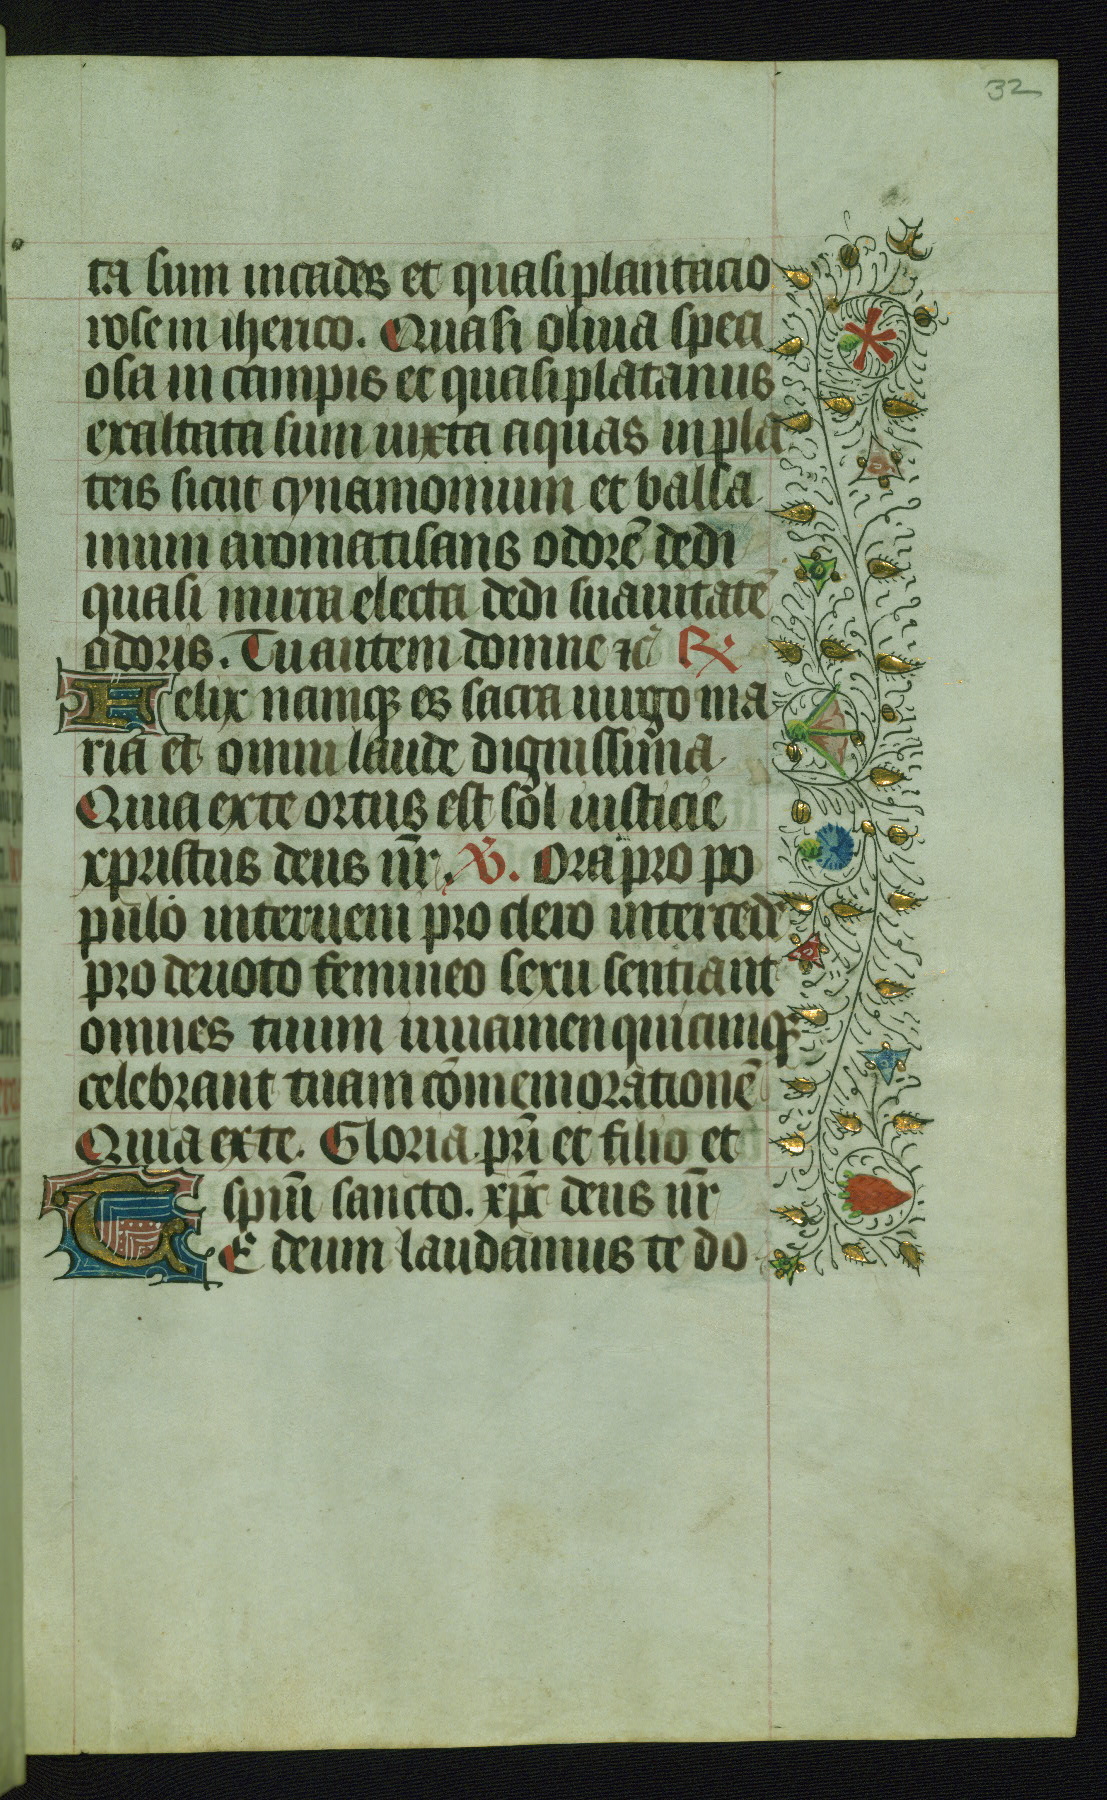 32
ta sum in cades et quasi plantacio
rose in iherico. Quasi oliua speci
osa in campis et quasi platanus
exaltata sum iuxta aquas in pla
teis sicut cynamomium et balsa
mum aromatisans odorē dedi
quasi mirra electa dedi suauitatē
odoris. Tu autem domine ⁊c̄ ℟.
Felix namqꝫ es sacra uirgo ma
ria et omni laude dignissima
Quia ex te ortus est sol iusticie
xpristus deus nr̄. ℣. Ora pro po
pulo interueni pro clero intercede
pro deuoto femineo sexu sentiant
omnes tuum iuuamen quicumqꝫ
celebrant tuam cōmemorationē
Quia ex te. Gloria pr̄i et filio et
spiū sancto. xp̄c deus nr̄
TE deum laudamus te do